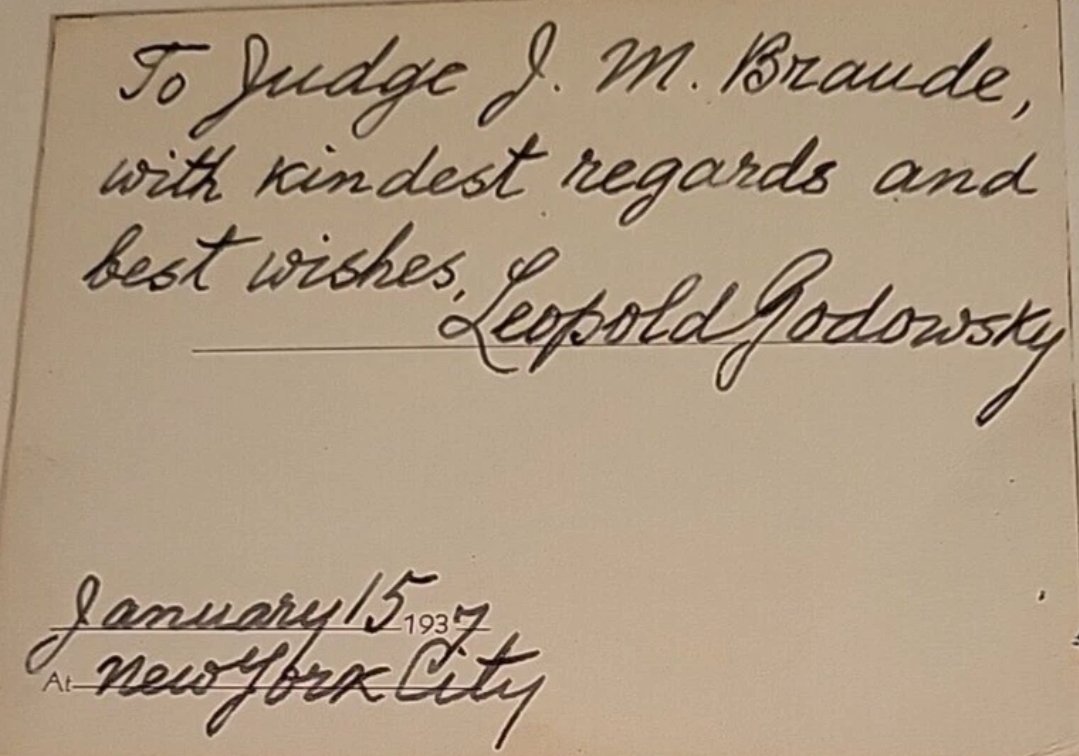 To Judge J. M. Braude,
with kindest regards and
best wishes,
Leopold Godowsky
January 15 1937
At New York City